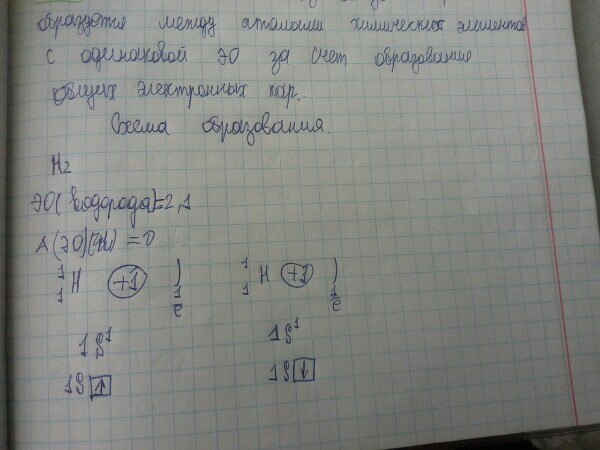 образдотся между атомами химических элементов
с одинаковой ЭО за счет образование
общих электронных пар..
Схема образования.
H2
ЭО(водорода)=2,1
Δ(ЭО)(H2) = 0
1 1 H +1 ) 1e 1 1 H +1 ) 1e
1S1 1S1
1S ↑ 1S ↓